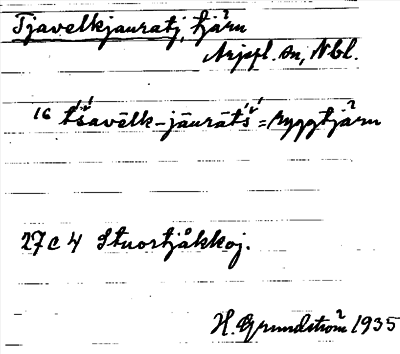 Tjavelkjauratj, tjärn
Arjepl. sn, Nbl.
16 t́śavēlk-jāurāt́ś = Ryggtjärn
27 C 4 Stuortjåkkoj.
H. Grundström 1935